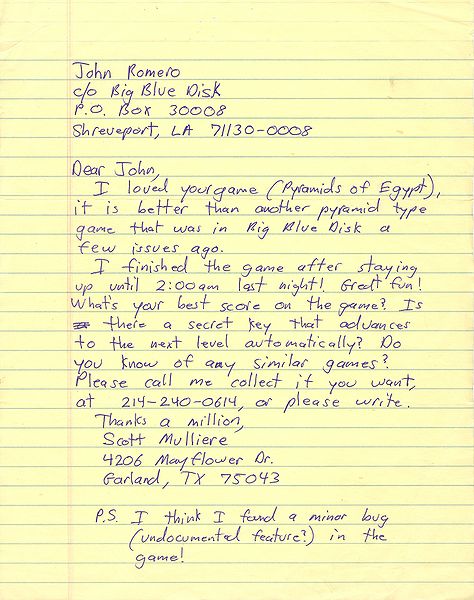 John Romero
c/o Big Blue Disk
P.O. Box 30008
Shreveport, LA 71130-0008
Dear John,
I loved your game (Pyramids of Egypt),
it is better than another pyramid type
game that was in Big Blue Disk a
few issues ago.
I finished the game after staying
up until 2:00am last night! Great fun!
What's your best score on the game? Is
there a secret key that advances
to the next level automatically? Do
you know of any similar games?
Please call me collect if you want,
at 214-240-0614, or please write.
Thanks a million,
Scott Mulliere
4206 Mayflower Dr.
Garland, TX 75043
P.S. I think I found a minor bug
(undocumented feature?) in the
game!